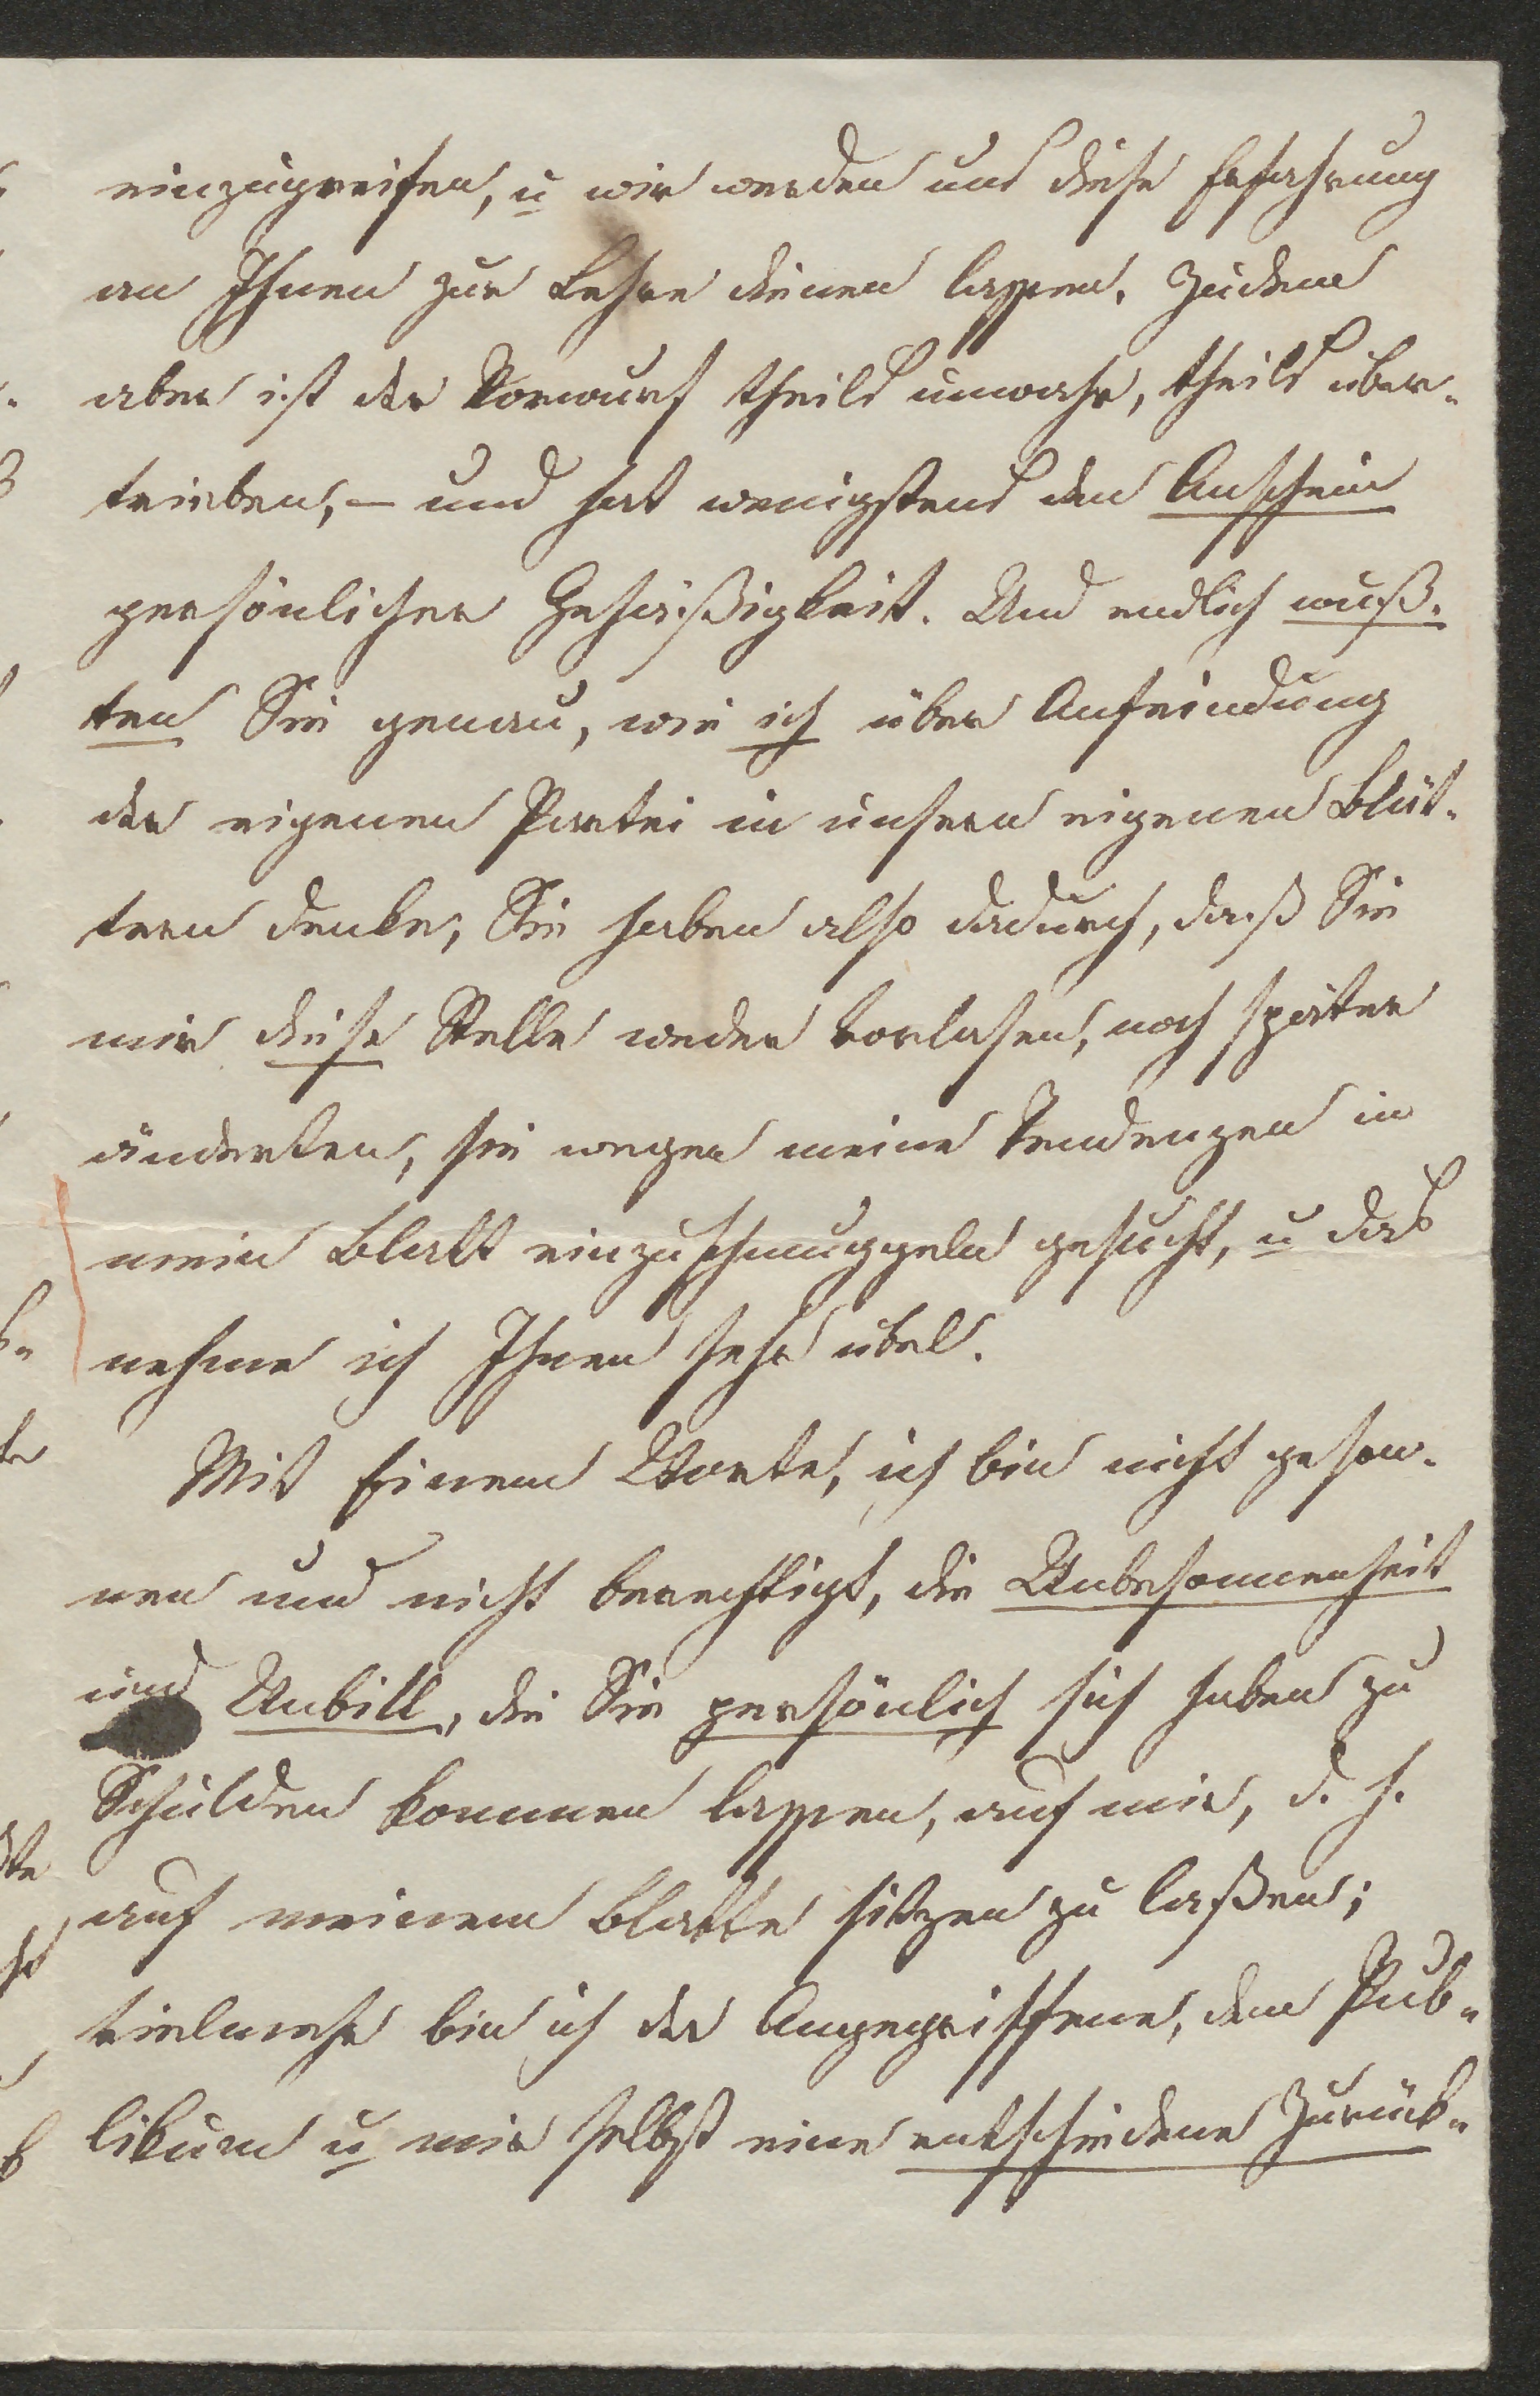 einzugreifen, u wir werden uns diese Erfahrung
an Ihnen zur Lehre dienen lassen. Zudem
aber ist der Vorwurf theils unwahr, theils über-
trieben, – und hat wenigstens den Anschein
persönlicher Gehäßigkeit. Und endlich wuß-
ten Sie genau, wie ich über Anfeindung
der eigenen Partei in unsern eigenen Blät-
tern denke; Sie haben also dadurch, daß Sie
mir diese Stelle weder vorlasen, noch später
änderten, sie gegen meine Tendenzen in
mein Blatt einzuschmuggeln gesucht, u das
nehme ich Ihnen sehr übel.
Mit Einem Worte, ich bin nicht geson-
nen und nicht berechtigt, die Unbesonnenheit
und Unbill, die Sie persönlich sich haben zu
Schulden kommen lassen, auf mir, d. h.
auf meinem Blatte sitzen zu laßen;
vielmehr bin ich der Angegriffene, dem Pub-
likum u mir selbst eine entschiedene Zurück-